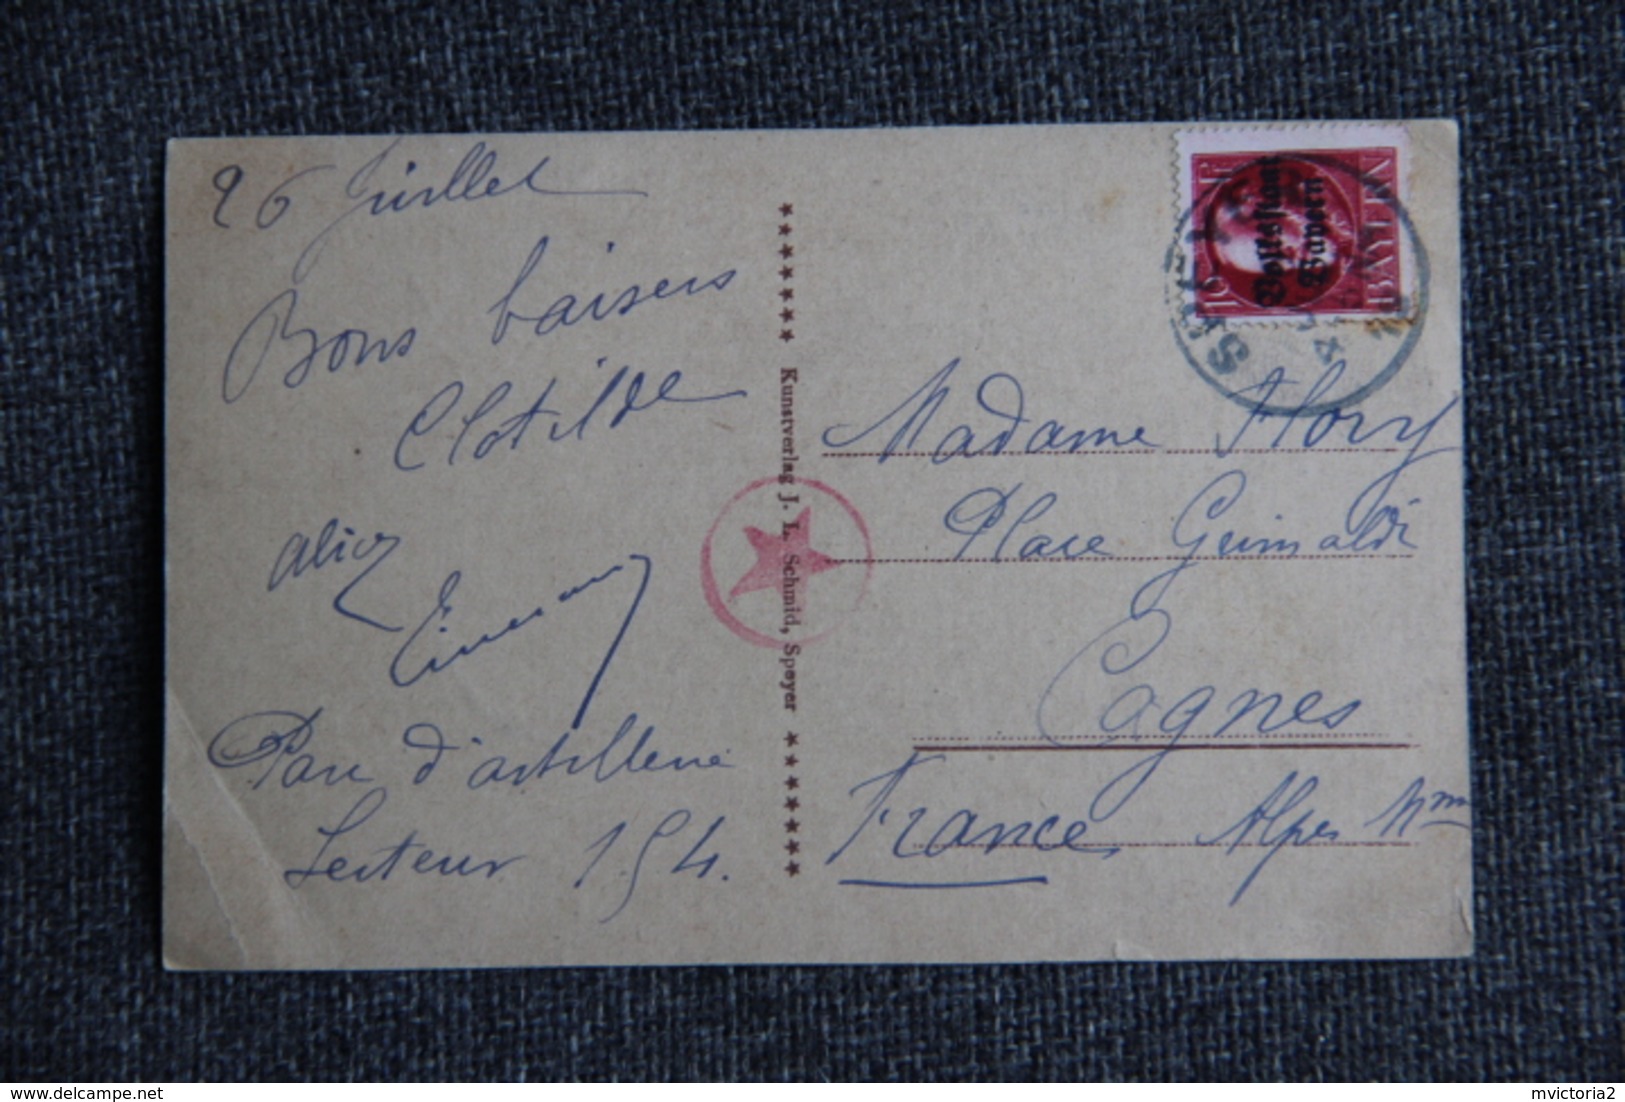 26 Juillet
Bons baisers
Clotilde
Alice
Parc d'artillerie
Secteur 154.
Kunstverlag J. L. Schmid, Speyer
10
BAYERN
Volksstaat
Bayern
Madame Flory
Place Grimaldi
Cagnes
France, Alpes Mmes
mvictoria2